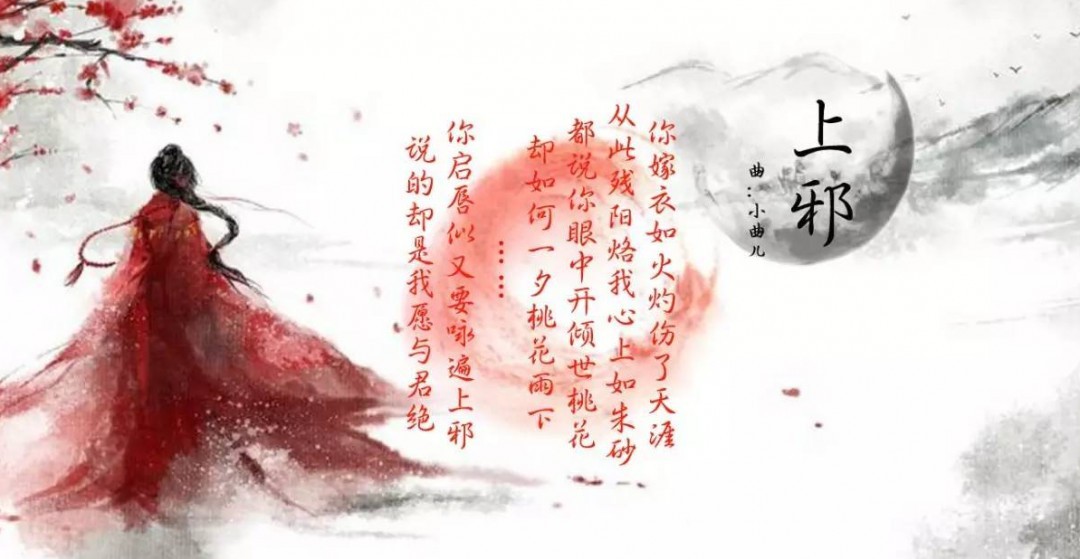 上邪
曲:小曲儿
你嫁衣如火灼伤了天涯
从此残阳烙我心上如朱砂
都说你眼中开倾世桃花
却如何一夕桃花雨下
……
你启唇似又要咏遍上邪
说的却是我愿与君绝